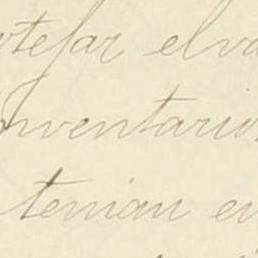 otejar el va
inventario
tenian en